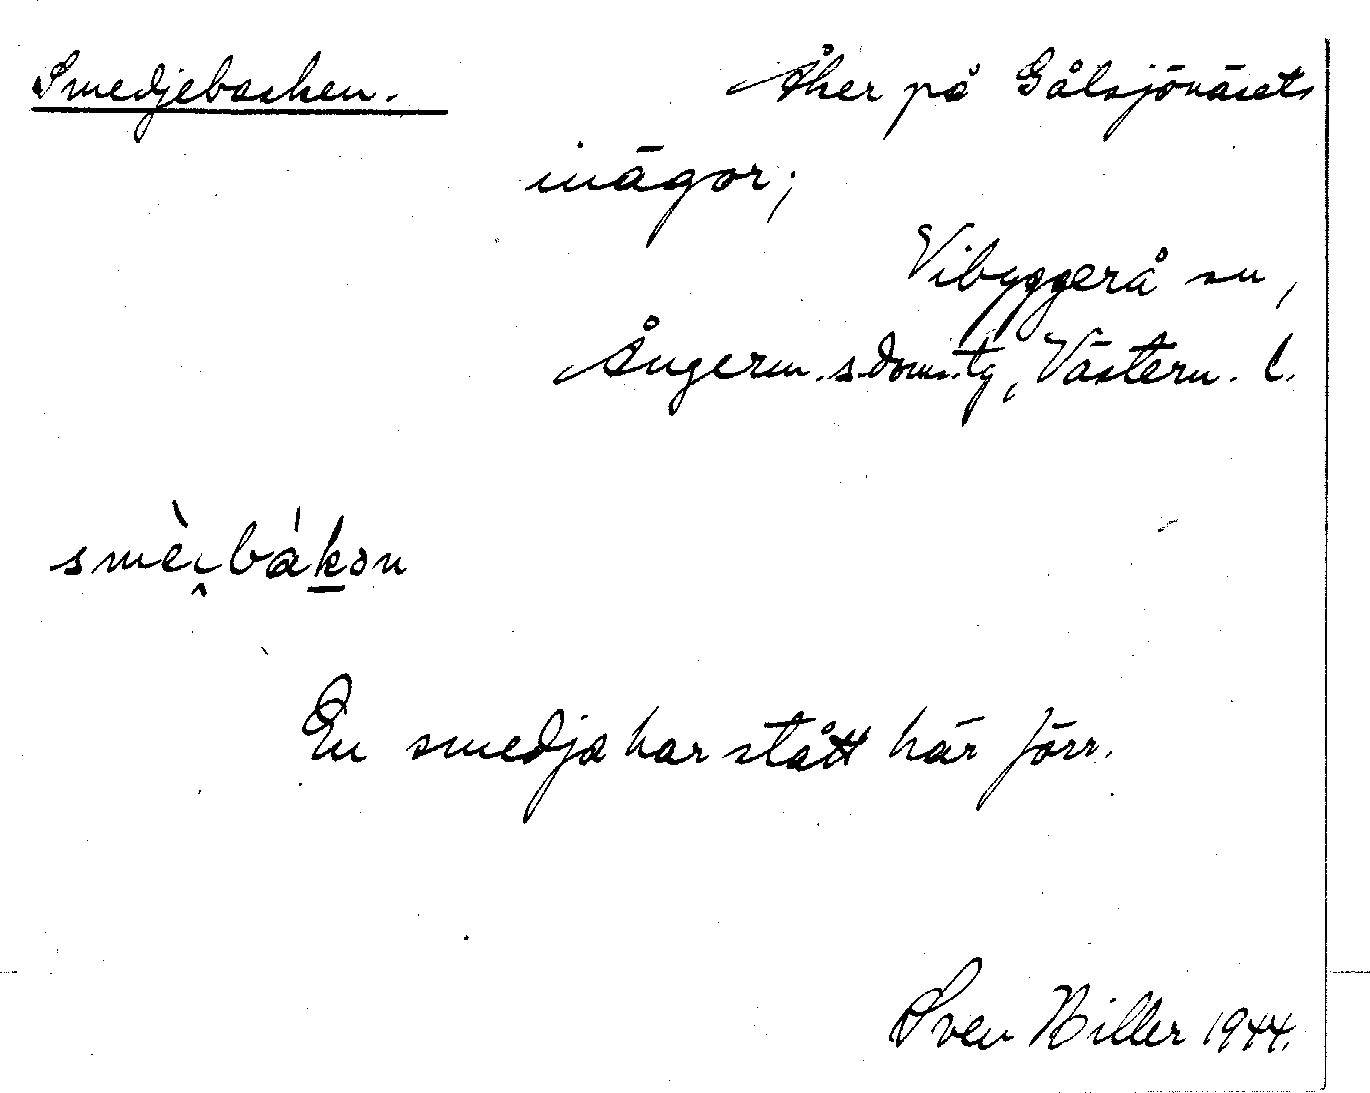 Smedjebacken. Åker på Gålsjönäsets
inägor;
Vibyggerå sn,
Ångerm.s.doms.tg, Västern. l.
smèi̯bákən
En smedja har stått här förr.
Sven Hiller 1944.